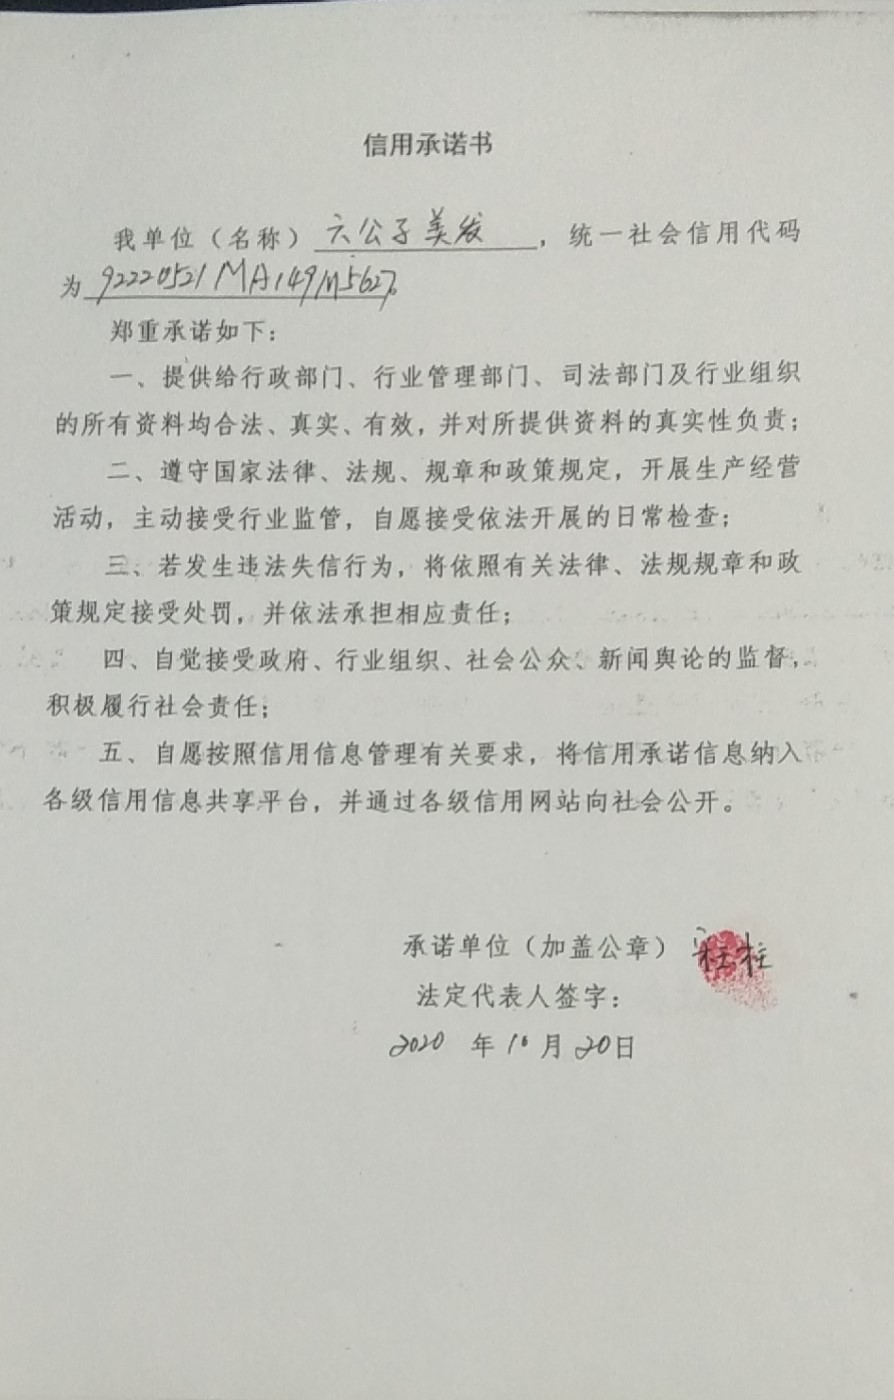 信用承诺书
我单位（名称）六公子美发，统一社会信用代码
为92220521MA149M5627。
郑重承诺如下：
一、提供给行政部门、行业管理部门、司法部门及行业组织
的所有资料均合法、真实、有效，并对所提供资料的真实性负责；
二、遵守国家法律、法规、规章和政策规定，开展生产经营
活动，主动接受行业监管，自愿接受依法开展的日常检查；
三、若发生违法失信行为，将依照有关法律、法规规章和政
策规定接受处罚，并依法承担相应责任；
四、自觉接受政府、行业组织、社会公众、新闻舆论的监督，
积极履行社会责任；
五、自愿按照信用信息管理有关要求，将信用承诺信息纳入
各级信用信息共享平台，并通过各级信用网站向社会公开。
承诺单位（加盖公章）
法定代表人签字：
2020 年 10 月 20日